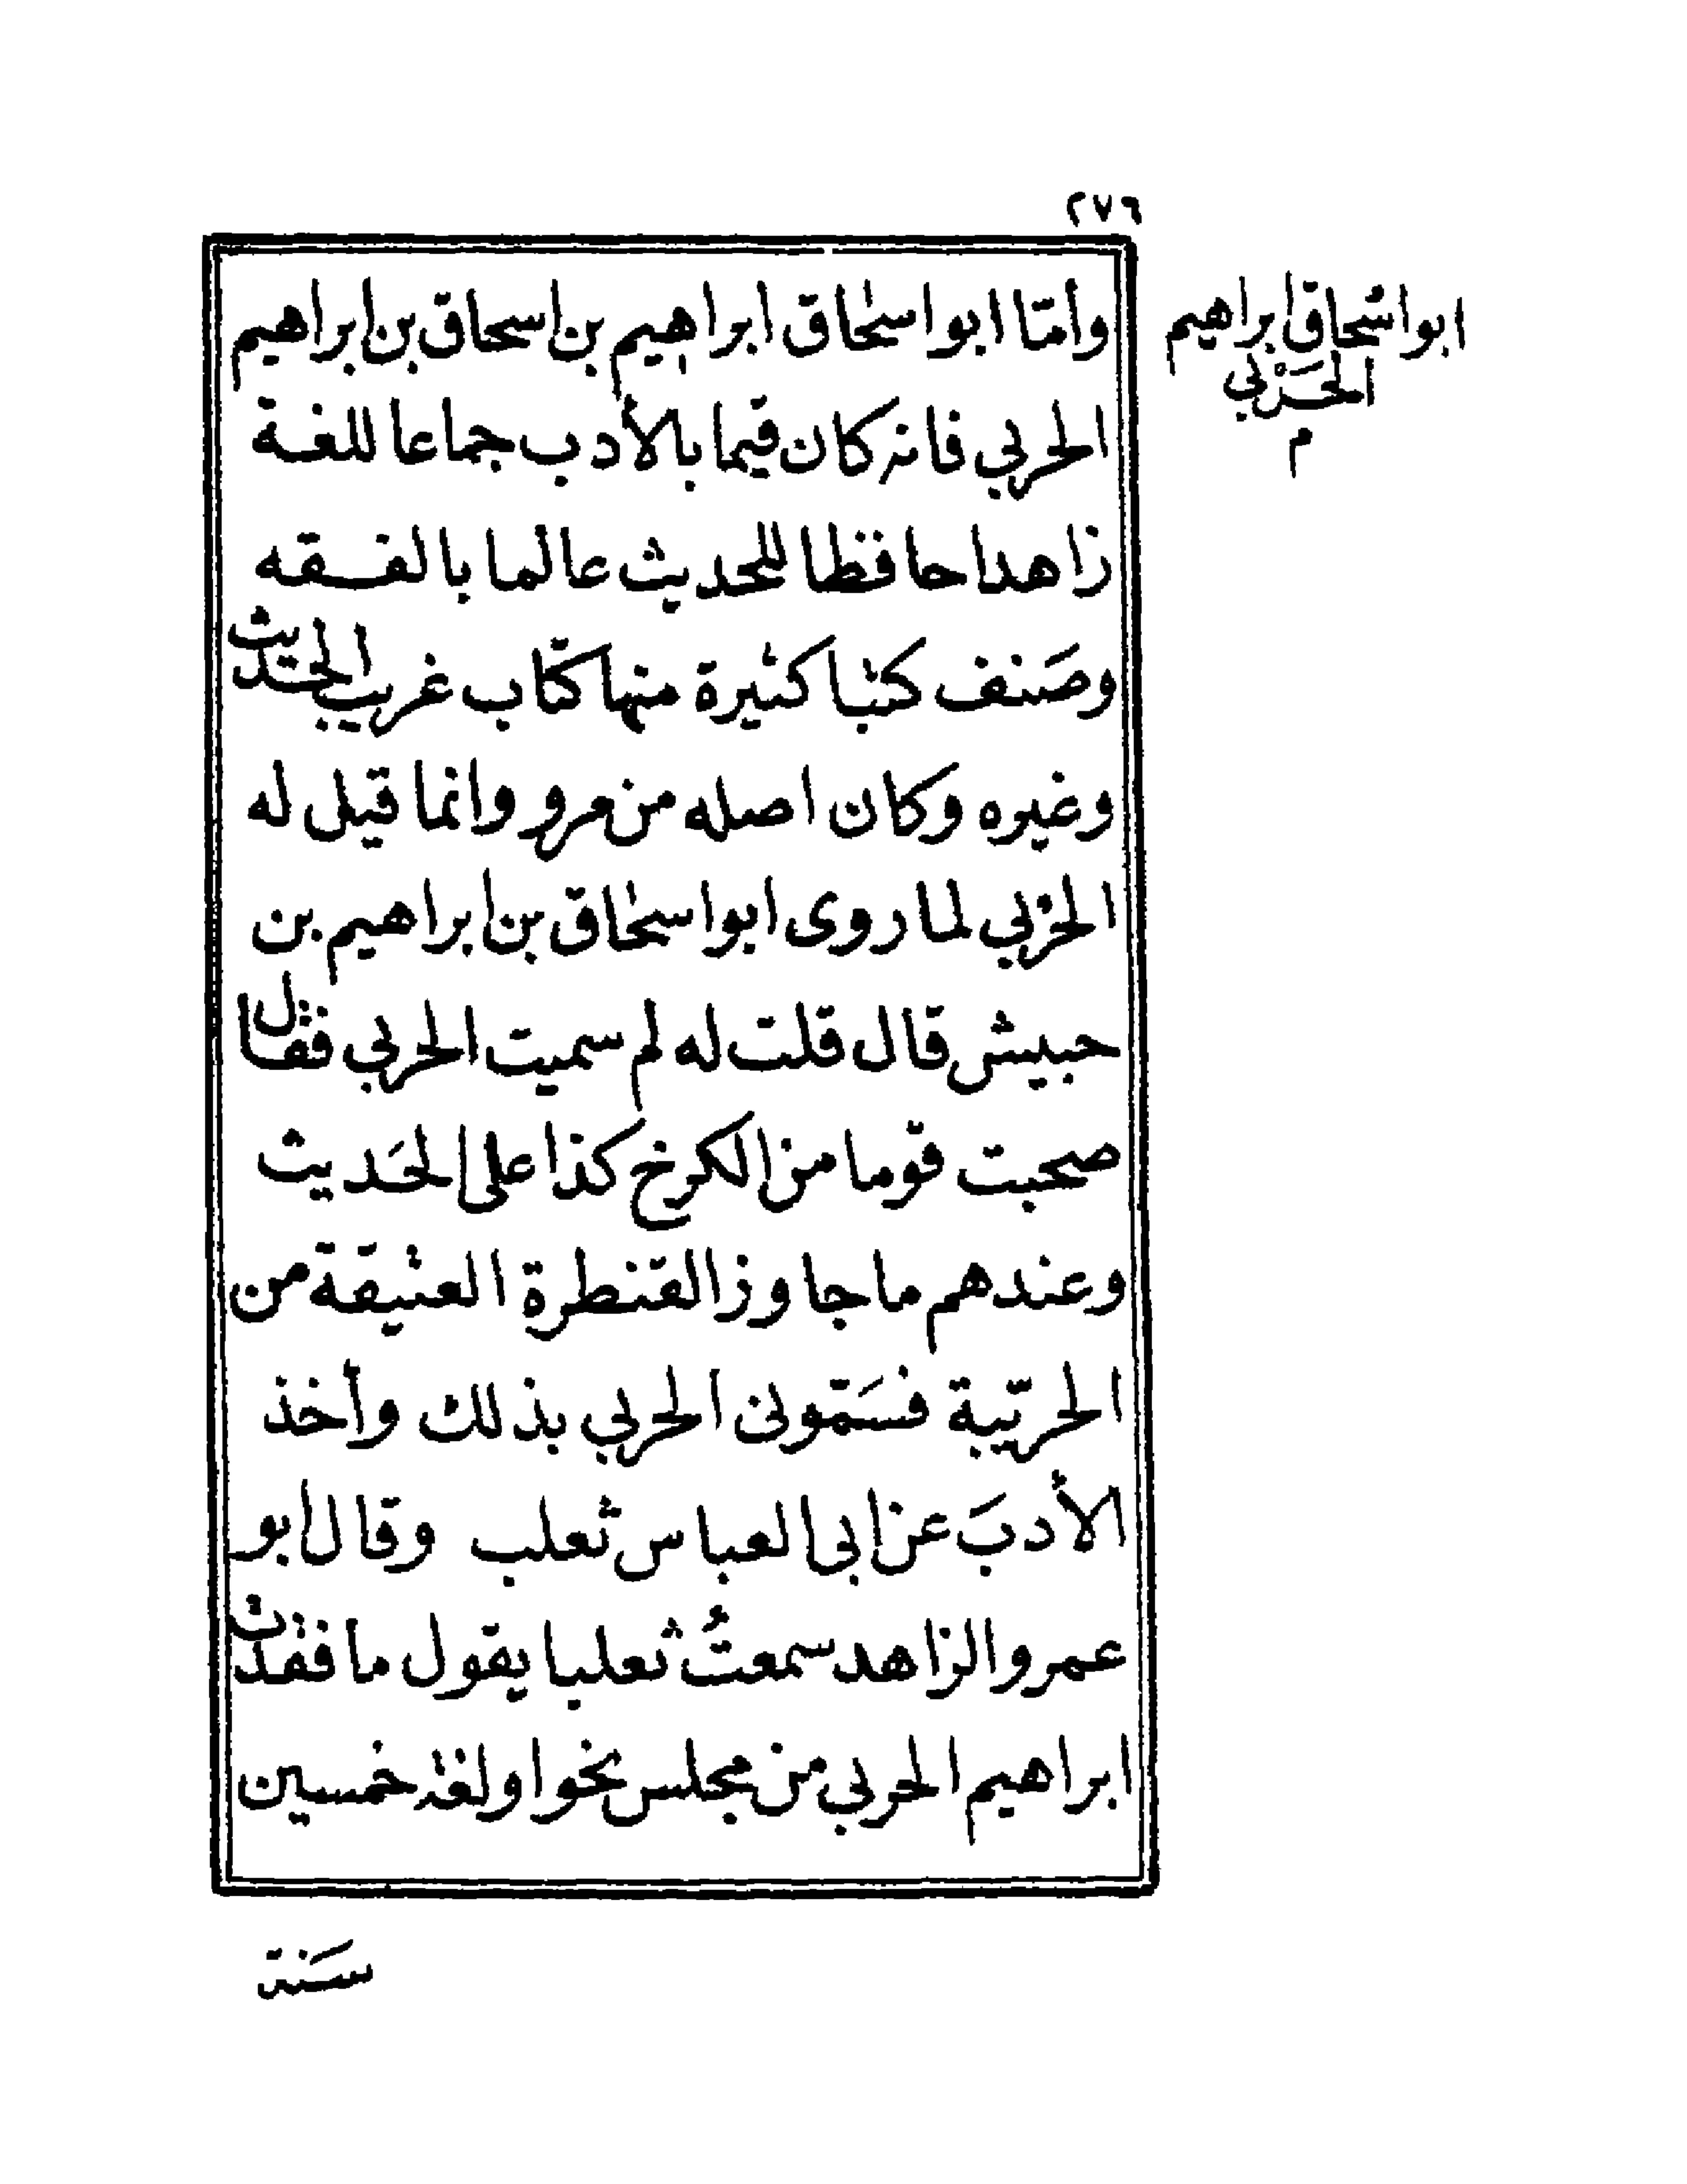 ٢٧٦
ابو اسحاق ابراهيم
الحَرْبي
م
وأمّا ابو اسحٰاق ابراهيم بن اسحاق بن ابراهيم
الحربي فانه كان قيما بالأدب جماعا للغة
زاهدا حافظا للحديث عالما بالفقه
وصَنف كتبا كثيرة منها كتاب غريب الحديث
وغيره وكان اصله من مرو وانما قيل له
الحرْبي لما روى ابو اسحٰاق بن ابراهيم بن
حبيش قال قلت له لم سميت الحربي فقال
صحبت قوما من الكرخ كذا على الحَديث
وعندهم ما جاوز القنطرة العتيقة من
الحربّية فسَمّونى الحربي بذلك وأخذ
الأدبَ عن ابى العباس ثعلب وقال ابو
عمرو الزاهد سمعتُ ثعلبا يقول ما فقدت
ابراهيم الحربي من مجلس نحو او لغة خمسين
سَنة